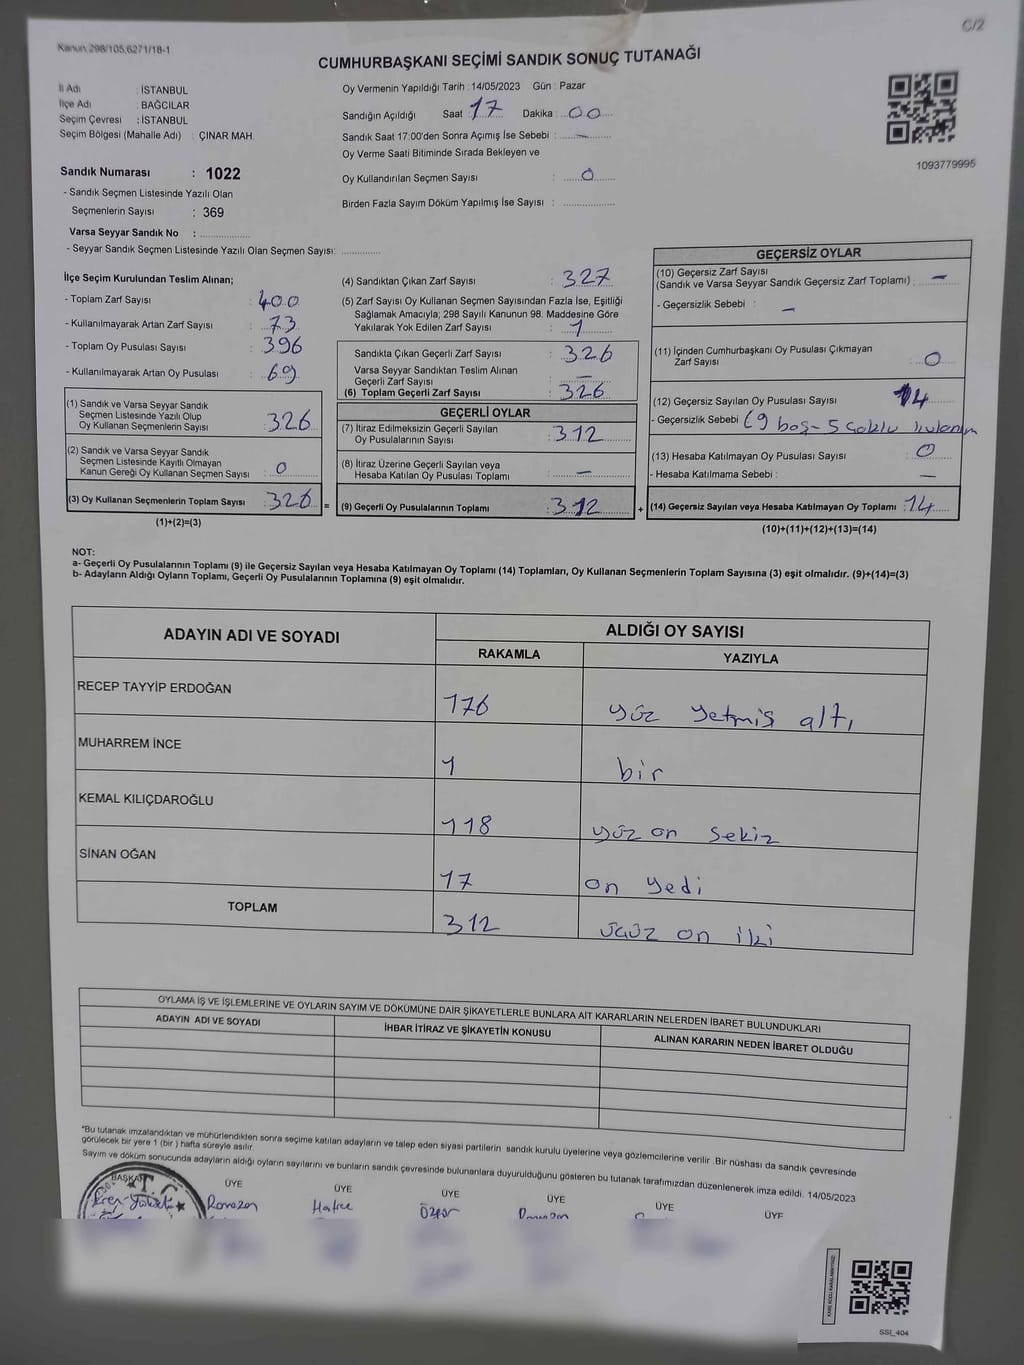 C/2
Kanun 298/105,6271/18-1
CUMHURBAŞKANI SEÇİMİ SANDIK SONUÇ TUTANAĞI
İl Adı : İSTANBUL
İlçe Adı : BAĞCILAR
Seçim Çevresi : İSTANBUL
Seçim Bölgesi (Mahalle Adı) : ÇINAR MAH.
Oy Vermenin Yapıldığı Tarih : 14/05/2023 Gün : Pazar
Sandığın Açıldığı Saat : 17 Dakika : 00
Sandık Saat 17:00'den Sonra Açımış İse Sebebi : —
Oy Verme Saati Bitiminde Sırada Bekleyen ve
Oy Kullandırılan Seçmen Sayısı : 0
Birden Fazla Sayım Döküm Yapılmış İse Sayısı :
1093779995
Sandık Numarası : 1022
- Sandık Seçmen Listesinde Yazılı Olan
Seçmenlerin Sayısı : 369
Varsa Seyyar Sandık No :
- Seyyar Sandık Seçmen Listesinde Yazılı Olan Seçmen Sayısı:
İlçe Seçim Kurulundan Teslim Alınan;
- Toplam Zarf Sayısı : 400
- Kullanılmayarak Artan Zarf Sayısı : 73
- Toplam Oy Pusulası Sayısı : 396
- Kullanılmayarak Artan Oy Pusulası : 69
(1) Sandık ve Varsa Seyyar Sandık
Seçmen Listesinde Yazılı Olup
Oy Kullanan Seçmenlerin Sayısı : 326
(2) Sandık ve Varsa Seyyar Sandık
Seçmen Listesinde Kayıtlı Olmayan
Kanun Gereği Oy Kullanan Seçmen Sayısı : 0
(3) Oy Kullanan Seçmenlerin Toplam Sayısı : 326 =
(1)+(2)=(3)
(4) Sandıktan Çıkan Zarf Sayısı : 327
(5) Zarf Sayısı Oy Kullanan Seçmen Sayısından Fazla İse, Eşitliği
Sağlamak Amacıyla; 298 Sayılı Kanunun 98. Maddesine Göre
Yakılarak Yok Edilen Zarf Sayısı : 1
Sandıkta Çıkan Geçerli Zarf Sayısı : 326
Varsa Seyyar Sandıktan Teslim Alınan
Geçerli Zarf Sayısı : —
(6) Toplam Geçerli Zarf Sayısı : 326
GEÇERLİ OYLAR
(7) İtiraz Edilmeksizin Geçerli Sayılan
Oy Pusulalarının Sayısı : 312
(8) İtiraz Üzerine Geçerli Sayılan veya
Hesaba Katılan Oy Pusulası Toplamı : —
(9) Geçerli Oy Pusulalarının Toplamı : 312 +
GEÇERSİZ OYLAR
(10) Geçersiz Zarf Sayısı
(Sandık ve Varsa Seyyar Sandık Geçersiz Zarf Toplamı) : —
- Geçersizlik Sebebi : —
(11) İçinden Cumhurbaşkanı Oy Pusulası Çıkmayan
Zarf Sayısı : 0
(12) Geçersiz Sayılan Oy Pusulası Sayısı : 14
- Geçersizlik Sebebi (9 boş-5 Çoklu kullanım
(13) Hesaba Katılmayan Oy Pusulası Sayısı : 0
- Hesaba Katılmama Sebebi : —
(14) Geçersiz Sayılan veya Hesaba Katılmayan Oy Toplamı : 14
(10)+(11)+(12)+(13)=(14)
NOT:
a- Geçerli Oy Pusulalarının Toplamı (9) ile Geçersiz Sayılan veya Hesaba Katılmayan Oy Toplamı (14) Toplamları, Oy Kullanan Seçmenlerin Toplam Sayısına (3) eşit olmalıdır. (9)+(14)=(3)
b- Adayların Aldığı Oyların Toplamı, Geçerli Oy Pusulalarının Toplamına (9) eşit olmalıdır.
ADAYIN ADI VE SOYADI ALDIĞI OY SAYISI
RAKAMLA YAZIYLA
RECEP TAYYİP ERDOĞAN 176 yüz yetmiş altı
MUHARREM İNCE 1 bir
KEMAL KILIÇDAROĞLU 118 yüz on sekiz
SİNAN OĞAN 17 on yedi
TOPLAM 312 üçüz on iki
OYLAMA İŞ VE İŞLEMLERİNE VE OYLARIN SAYIM VE DÖKÜMÜNE DAİR ŞİKAYETLERLE BUNLARA AİT KARARLARIN NELERDEN İBARET BULUNDUKLARI
ADAYIN ADI VE SOYADI İHBAR İTİRAZ VE ŞİKAYETİN KONUSU ALINAN KARARIN NEDEN İBARET OLDUĞU
*Bu tutanak imzalandıktan ve mühürlendikten sonra seçime katılan adayların ve talep eden siyasi partilerin sandık kurulu üyelerine veya gözlemcilerine verilir. Bir nüshası da sandık çevresinde
görülecek bir yere 1 (bir) hafta süreyle asılır.
Sayım ve döküm sonucunda adayların aldığı oyların sayılarını ve bunların sandık çevresinde bulunanlara duyurulduğunu gösteren bu tutanak tarafımızdan düzenlenerek imza edildi. 14/05/2023
BAŞKAN ÜYE ÜYE ÜYE ÜYE ÜYE ÜYE
T.C.
Ramazan Hatice Özgür Ramazan
SSI_404